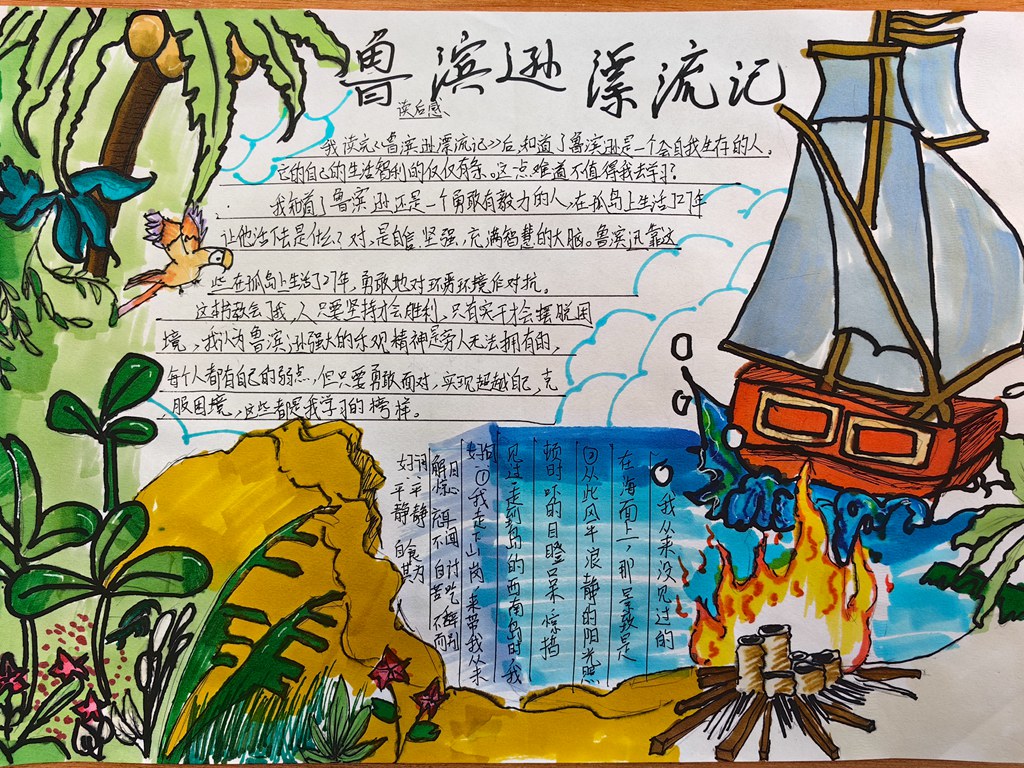 鲁滨逊漂流记
读后感
我读完《鲁滨逊漂流记》后,知道了鲁滨逊是一个会自我生存的人。
它的自己的生活智利的仅仅有条。这一点难道不值得我去学习?
我知道了鲁滨逊还是一个勇敢有毅力的人,在孤岛上生活了27年
让他活下去是什么?对,是自食坚强,充满智慧的大脑。鲁滨逊靠这
些在孤岛上生活了27年,勇敢地对环恶环境作对抗。
这书教会了我,人只要坚持才会胜利,只有实干才会摆脱困
境,我认为鲁滨逊强大的乐观精神是旁人无法拥有的,
每个人都有自己的弱点,但只要勇敢面对,实现超越自己,克
服困境,这些都是我学习的榜样。
我从来没见过的
在海面上,那景致是
③从此风平浪静的阳光照
顿时吓的目瞪口呆 惊搞
见过走到岛的西南岛时我
好句:①我走下山岗,来带我从来
好词:平平静静 自食其